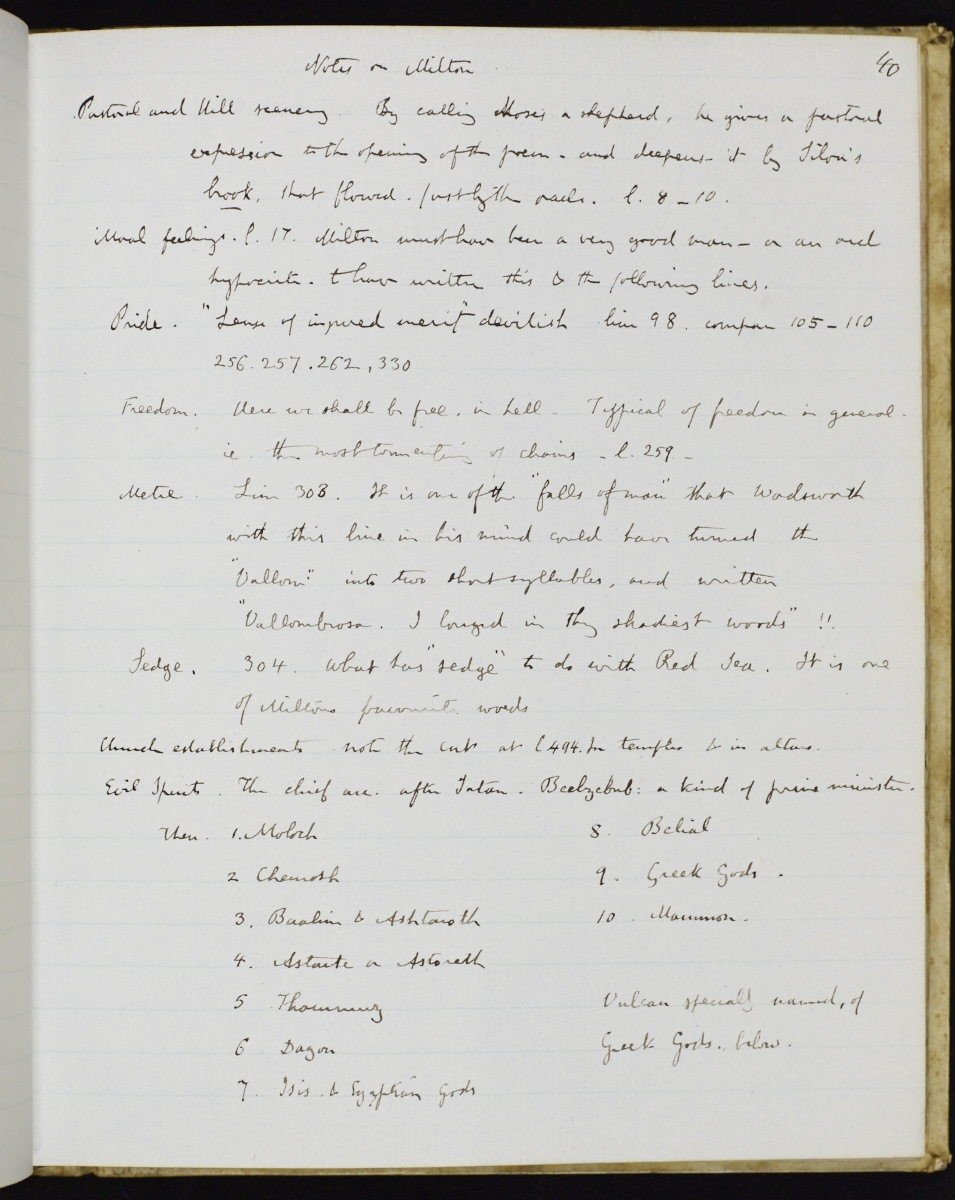 Notes on Milton
40
Pastoral and Hill scenery. By calling Moses a shepherd, he gives a pastoral
expression to the opening of the poem - and deepens it by Siloa's
brook, that flowed. fast by the oracle. l. 8-10.
Moral feelings. l. 17. Milton must have been a very good man - or an
hypocrite - to have written this & the following lines.
Pride. "Sense of injured merit" devilish line 98. compare 105-110
256. 257. 262, 330
Freedom. Here we shall be free, in hell - Typical of freedom in general -
ie. the most tormenting of chains - l. 259 -
Metre. Line 303. It is one of the "falls of man" that Wordsworth
with this line in his mind could have turned the
"Vallom" into two short syllables, and written
"Vallombrosa. I longed in thy shadiest woods" !!.
Sedge. 304. What has "sedge" to do with Red Sea. It is one
of Miltons favourite words
Church establishments note the cut at l 494. In temples & in altars.
Evil Spirits. The chief are. after Satan - Beelzebub: a kind of prime minister.
Then. 1. Moloch
2 Chemosh
3. Baalim & Ashtaroth
4. Astarte or Astoreth
5 Thammuz
6 Dagon
7. Isis. & Egyptian Gods
8. Belial
9. Greek Gods.
10. Mammon.
Vulcan specially named, of
Greek Gods. below.